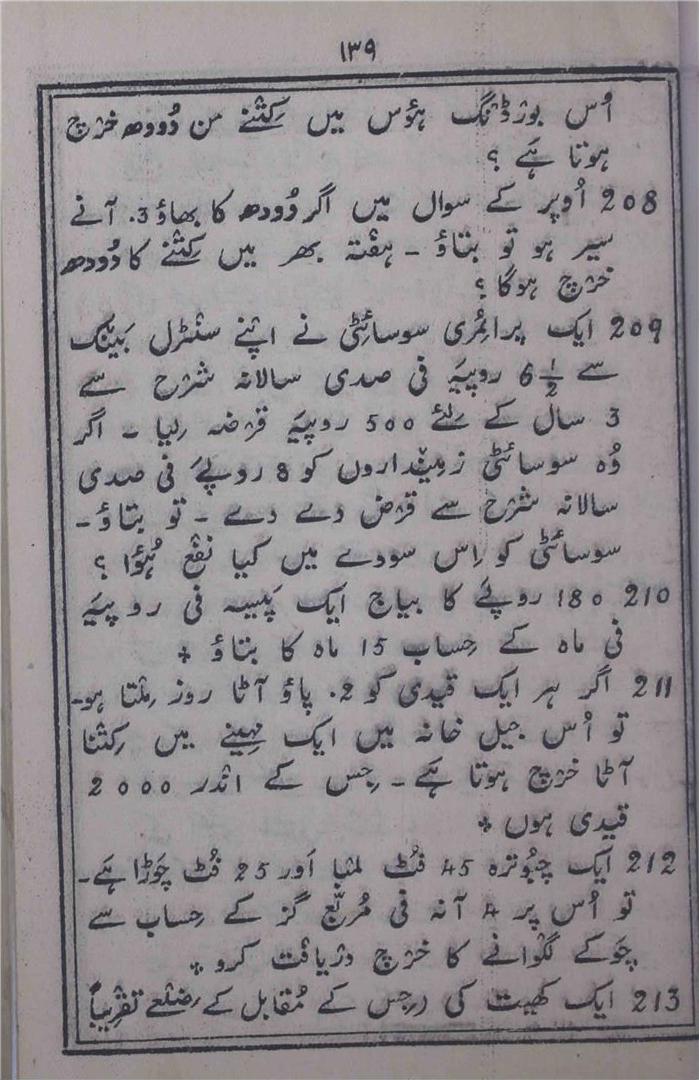 ۱۳۹
اُس بورڈنگ ہؤس میں کِتنے من دُودھ خرچ
ہوتا ہَے ؟
208 اُوپر کے سوال میں اگر دُودھ کا بھاؤ 3. آنے
سیر ہو تو بتاؤ ۔ ہفتہ بھر میں کِتنے کا دُودھ
خرچ ہوگا ؟
209 ایک پرائمری سوسائٹی نے اپنے سنٹرل بَینک
سے 6 1/2 روپیَہ فی صدی سالانہ شرح سے
3 سال کے لِئے 500 روپیَہ قرضہ لِیا ۔ اگر
وُہ سوسائٹی زمینداروں کو 8 روپَے فی صدی
سالانہ شرح سے قرض دے دے ۔ تو بتاؤ ۔
سوسائٹی کو اِس سودے میں کیا نفع ہُؤا ؟
210 180 روپَے کا بیاج ایک پَیسہ فی روپیَہ
فی ماہ کے حِساب 15 ماہ کا بتاؤ +
211 اگر ہر ایک قیدی کو 2. پاؤ آٹا روز مِلتا ہو۔
تو اُس جیل خانہ میں ایک مہِینے میں کِتنا
آٹا خرچ ہوتا ہَے ۔ جِس کے اندر 2000
قیدی ہوں +
212 ایک چبُوترہ 45 فُٹ لمبا اَور 25 فُٹ چَوڑا ہَے ۔
تو اُس پر 4 آنہ فی مُربّع گز کے حِساب سے
چوکے لگوانے کا خرچ دریافت کرو +
213 ایک کھیت کی (جِس کے مُقابل کے ضِلعے تقرِیباً